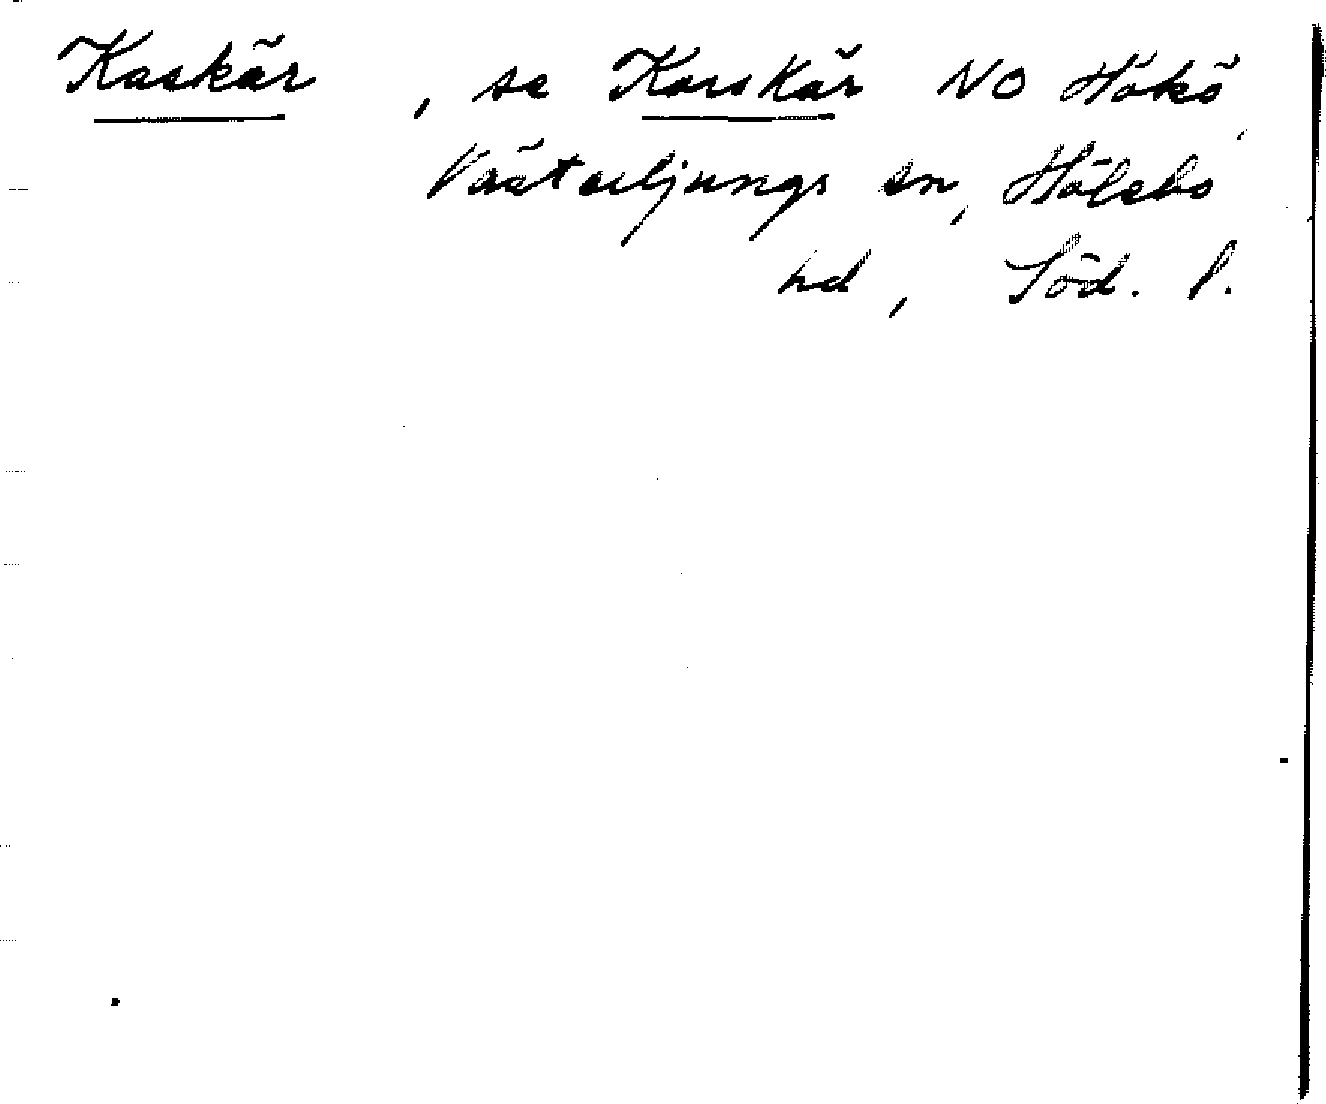 Kaskär, se Korskär NO Hökö,
Västerljungs sn, Hölebo
hd, Söd. l.